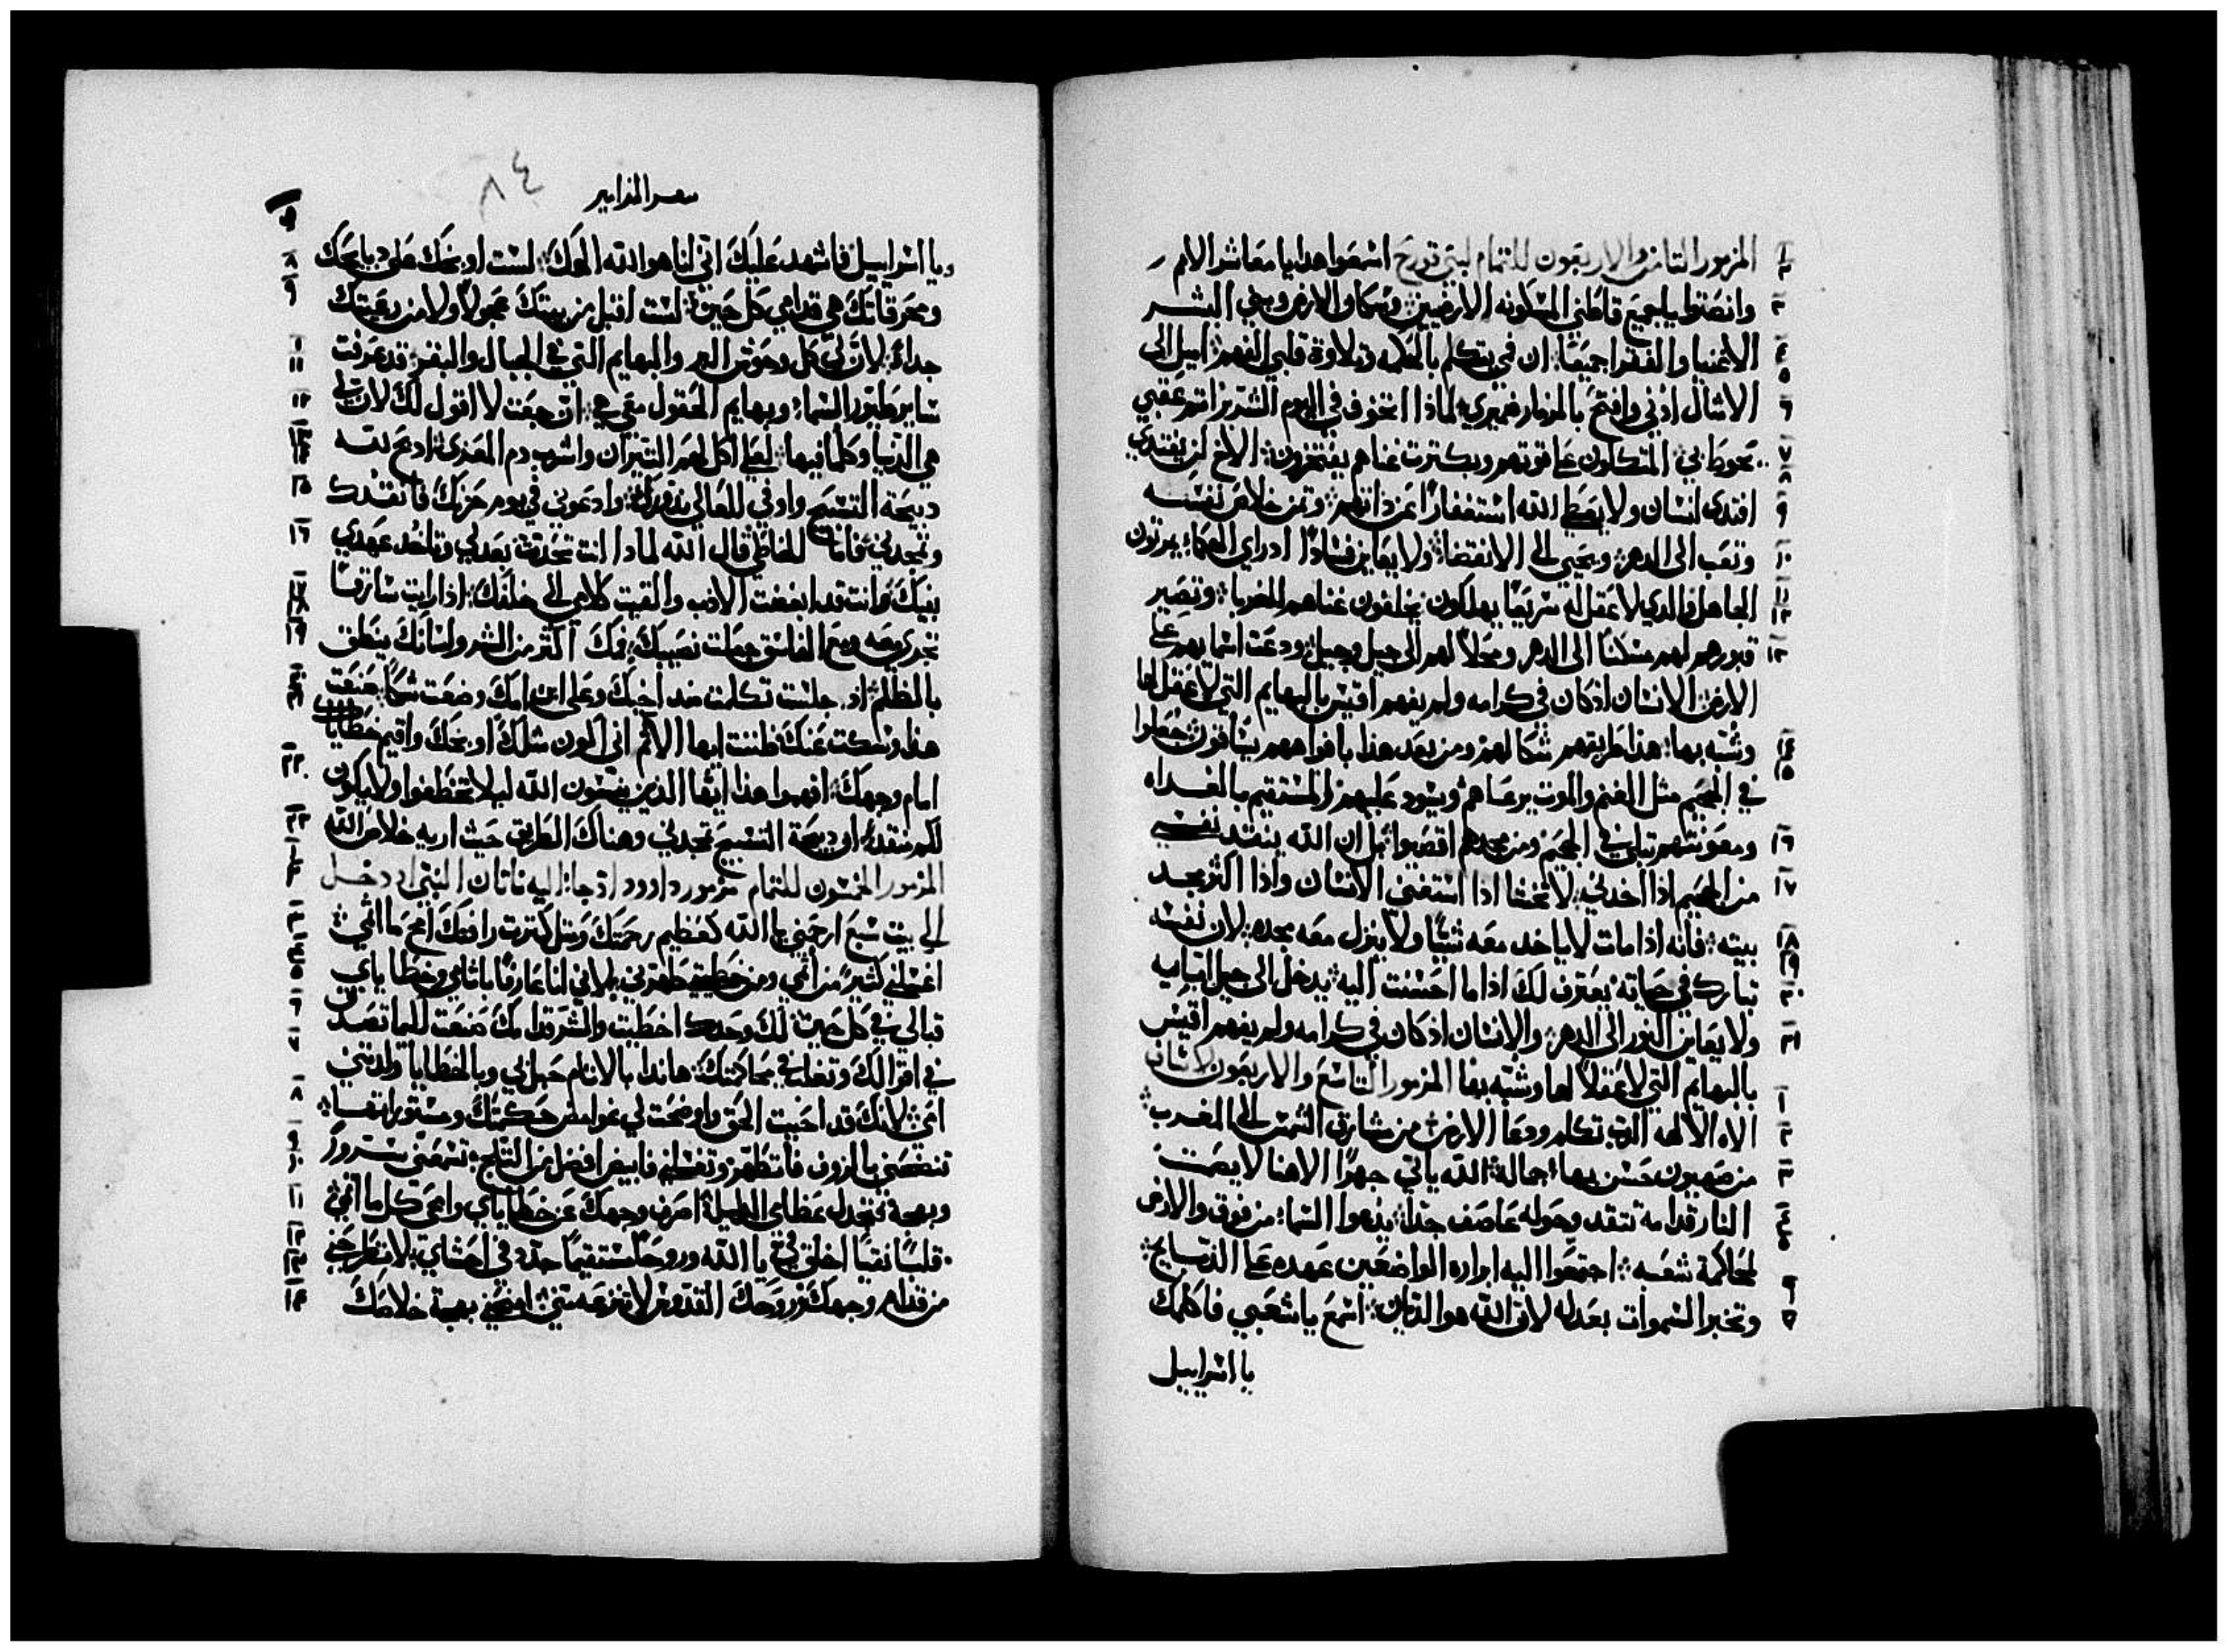 المزمور الثامن والاربعون للتمام لبني قورح اسمعوا هدا يا معاشر الامم
وانصتوا يا جميع قاطني المسكونه الارضيين وسكاو الارض وبني البشر
الاغنيا والفقرا جميعًا ان في يتكلم بالحكمه وتلاوة قلبي الفهم اميل الى
الامثال ادني وافتح بالمزمار ضميري لماذا اتخوف في اليوم الشرير اثم عقبي
تحوط بي المتكلون على قوتهم وبكترت غناهم يفتخرون الاخ لن يفتدي
افتدى انسان ولا يعطي الله استغفارًا عن ذاته وثمن خلاص نفسه
وتعب الى الدهر ويحيي الى الانقضا ولا يعاين فسادًا اذا راي الحكما يموتون
الجاهل والدي لا عقل له سريعًا يهلكون يخلفون غناهم للغربا وتصير
قبورهم لهم مسكنًا الى الدهر ومحلاً لهم الى جيل وجيل ودعت اسماهم على
الارض الانسان اذ كان في كرامه ولم يفهم اقيس بالبهايم التي لا عقل لها
وشبه بها هذا طريقهم شكا لهم ومن بعد هذا بافواههم يساقون جعلوا
في الجحيم مثل الغنم والموت يرعاهم ويسود عليهم المستقيم بالغداه
ومعونتهم تبلى في الجحيم ومن مجدهم اقصيوا بل ان الله ينقد نفسي
من الجحيم اذا اخدني لا تخشا اذا استغنى الانسان واذا اكثر مجد
بيته فانه اذا مات لا ياخد معه شيًا ولا ينزل معه مجده لان نفسه
تبارك في حياته يعترف لك اذا ما احسنت اليه يدخل الى جيل ابايه
ولا يعاين النور الى الدهر والانسان اذ كان في كرامه ولم يفهم اقيس
بالبهايم التي لا عقلاً لها وشبه بها المزمور التاسع والاربعون لاساف
الاه الالهه الرب تكلم ودعا الارض من مشارق الشمس الى المغرب
من صهيون حسن بها جماله الله ياتي جهرًا الاهنا لا يصمت
النار قدامه تتقد وحوله عاصف جدًا يدعوا السما من فوق والارض
لمحاكمة شعبه اجتمعوا اليه ابراره الواضعين عهده على الدبايح
وتخبر السموات بعدله لان الله هو الديان اسمع يا شعبي فاكلمك
يا اسراييل
سفر المزامير
٨٤
ويا اسراييل فاشهد عليك اني انا هو الله الهك لست اوبخك على دبايحك
ومحرقاتك هي قدامي كل حين لست اقبل من بيتك عجولاً ولا من رعيتك
جداء لان لي كل وحوش البر والبهايم التي في الجبال والبقر قد عرفت
ساير طيور السما وبهايم الحقول معي هي ان جعت لا اقول لك لان لي
هي الدنيا وكلما فيها لعلي اكل لحم التيران واشرب دم المعزى ادبح لله
دبيحة التسبيح واوفي للعالي ندورك وادعوني في يوم حزنك فانقدك
وتمجدني فاما للخاطي قال الله لمادا انت تحدث بعدلي وتاخد عهدي
بفيك وانت قد ابغضت الادب والقيت كلامي الى خلفك اذا رايت سارقًا
تجري معه ومع الفاسق جعلت نصيبك فمك اكثر من الشر ولسانك ينطق
بالظلم اد جلست تكلمت ضد اخيك وعلى ابن امك وضعت شكًا صنعت
هذا وسكت عنك ظننت ايها الاثم اني اكون مثلك اوبخك واقيم خطاياك
امام وجهك افهموا هذا ايها الذين ينسون الله ليلا تخطفوا ولا يكون
لكم منقد ان دبيحة التسبيح تمجدني وهناك الطريق حيث اريه خلاص الله
المزمور الخمسون للتمام مزمور داوود اذ جا اليه ناتان النبي اد دخل
الى بيت شبع ارحمني يا الله كعظيم رحمتك ومتل كترت رافتك امح ماثمي
اغسلني كثيرًا من اثمي ومن خطيتي طهرني لاني انا عارفًا باثامي وخطاياي
قبالي في كل حين لك وحدك اخطيت والشر قدامك صنعت لكيما تصدق
في اقوالك وتغلب في محاكمتك هاندا بالاثام حبل بي وبالخطايا ولدتني
امي لانك قد احببت الحق واوضحت لي غوامض حكمتك ومستوراتها
تنضحني بالزوفا فاتطهر وتغسلني فابيض افضل من الثلج تسمعني سرورًا
وبهجة فتجدل عظامي الدليلة اصرف وجهك عن خطاياي وامحى كل ماثمي
قلبًا نقيًا اخلق في يا الله وروحًا مستقيمًا جدد في احشاي لا تطرحني
من قدام وجهك وروحك القدوس لا تنزعه مني امنحني بهجة خلاصك